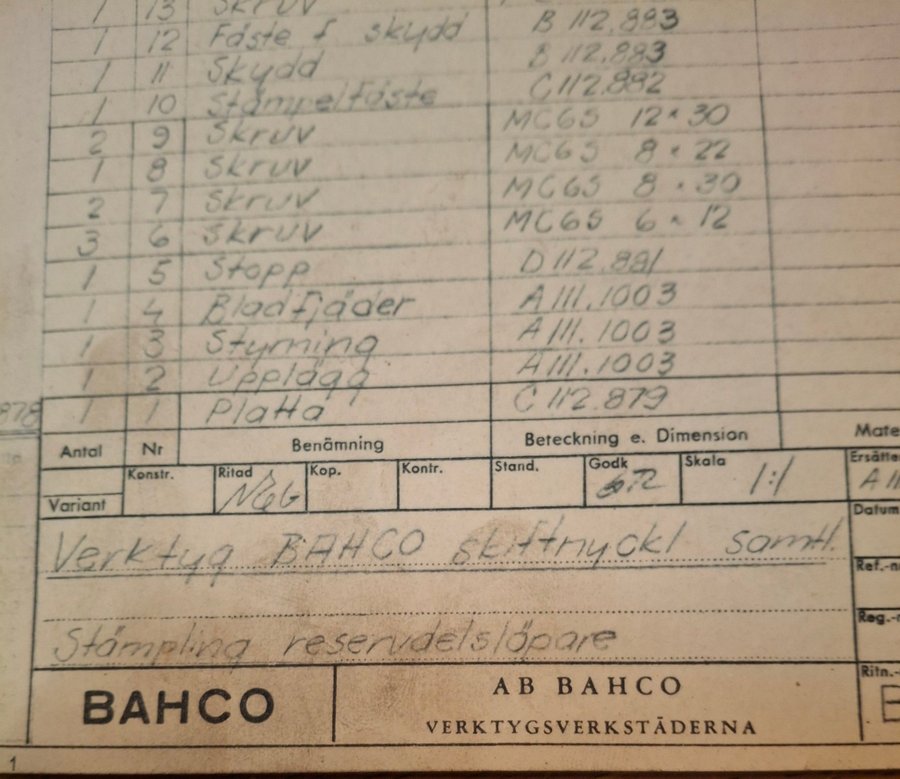 1 13 Skruv
1 12 Fäste f skydd B 112.883
1 11 Skydd B 112.883
1 10 Stämpelfäste C 112.882
2 9 Skruv MC6S 12 × 30
1 8 Skruv MC6S 8 × 22
2 7 Skruv MC6S 8 × 30
3 6 Skruv MC6S 6 × 12
1 5 Stopp D 112.881
1 4 Bladfjäder A 111.1003
1 3 Styrning A 111.1003
1 2 Upplägg A 111.1003
878 1 1 Platta C 112.879
Antal Nr Benämning Beteckning e. Dimension Mate
Variant Konstr. Ritad Kop. Kontr. Stand. Godk Skala 1:1 Ersätte A 11
Datum
Verktyg BAHCO skiftnyckl samtl.
Ref.-n
Reg.-n
Stämpling reservdelslöpare
BAHCO AB BAHCO Ritn.-
VERKTYGSVERKSTÄDERNA
1